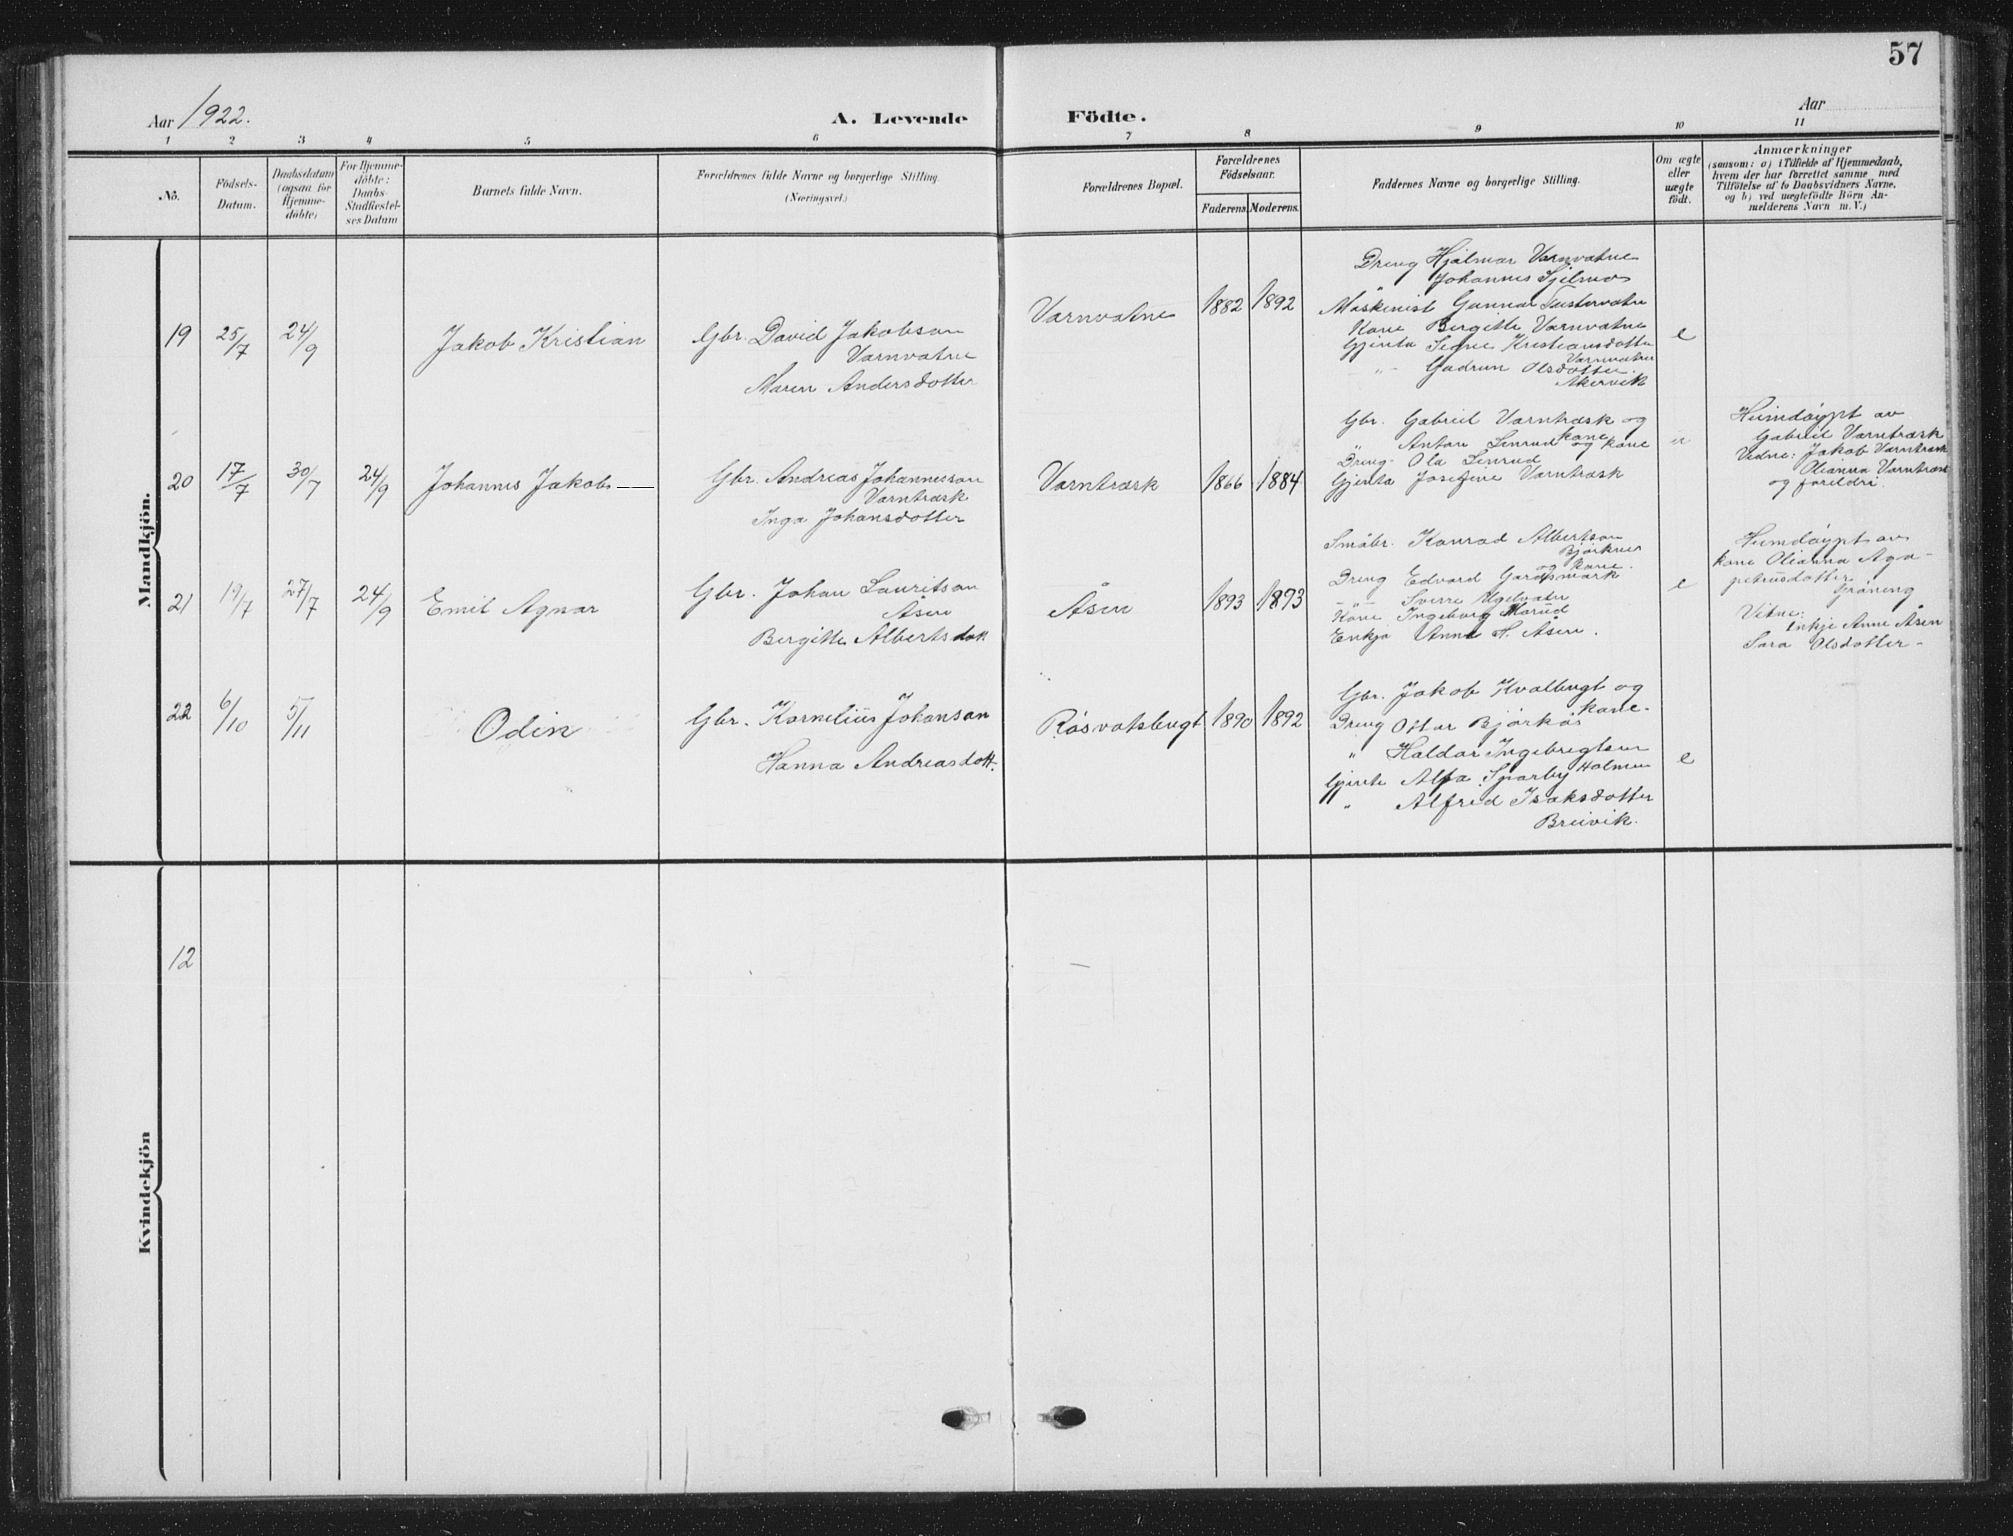 57
Aar 1922.
A. Levende Födte.
Aar
1 2 3 4 5 6 7 8 9 10 11
No.
Födsels-Datum.
Daabsdatum (ogsaa for Hjemme-döbte)
For Hjemme-döbte: Daabs-Stadfæstel-ses Datum
Barnets fulde Navn.
Forældrenes fulde Navne og borgerlige Stilling.
(Næringsvei.)
Forældrenes Bopæl.
Forældrenes Födselsaar.
Faderens. Moderens.
Faddernes Navne og borgerlige Stilling.
Om ægte eller uægte födt.
Anmærkninger
(saasom: a) i Tilfælde af Hjemmedaab,
hvem der har forrettet samme med
Tilföielse af to Daabsvidners Navne,
og b) ved uægtefödte Börn An-
melderens Navn m. V.)
Mandkjön.
19 25/7 24/9
Jakob Kristian
Gbr. David Jakobson
Varnvatne
Maren Andersdotter
Varnvatne
1882 1892
Dreng Hjalmar Varnvatne
Johannes
Maskinist Gunnar Tustervatne
Kone Bergitte Varnvatne
Gjenta Signe Kristiansdotter
Varnvatne
" Gudrun Olsdotter.
Akervik
e
20 17/7 30/7 24/9
Johannes Jakob
Gbr. Andreas Johannesson
Varntræsk
Inga Johansdotter
Varntræsk
1866 1884
Gbr. Gabriel Varntræsk og
kone
" Anton Lenrud og kone
Dreng Ola Lenrud
Gjenta Josefine Varntræsk
Heimdøypt av
Gabriel Varntræsk
Vidne: Jakob Varntræsk
Olianna Varntræsk
og foreldri.
21 19/7 27/7 24/9
Emil Agnar
Gbr. Johan Lauritson
Åsen
Bergitte Albertsdott
Åsen
1893 1893
Småbr. Konrad Albertson
Bjørknes
og kone.
Dreng Edvard Gardsmark
" Sverre Ugelvatn
Kone Ingeborg Marud
Enkja Anna H. Åsen.
e
Heimdøypt av
kone Olianna Aga-
petrusdotter
Grøneng
Vitne:
Enkje Anne Åsen
Sara Olsdotter -
22 6/10 5/11
Odin
Gbr. Kornelius Johanson
Hanna Andreasdott.
Røsvatsbugt
1890 1892
Gbr. Jakob Kvalbugt og
kone.
Dreng Ottar Bjørkås
" Haldor Ingebregtsen
Holmen
Gjenta Alfa Sparby
" Alfrid Isaksdotter
Breivik.
e
Kvindekjön
12